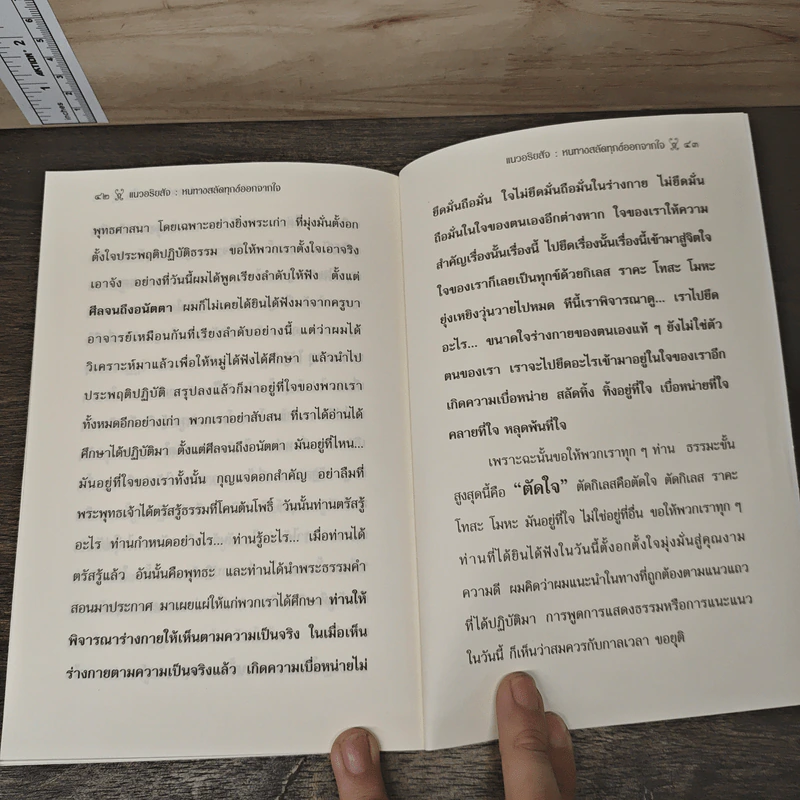 ๔๒ แนวอริยสัจ : หนทางสลัดทุกข์ออกจากใจ
พุทธศาสนา โดยเฉพาะอย่างยิ่งพระเก่า ที่มุ่งมั่นตั้งอก
ตั้งใจประพฤติปฏิบัติธรรม ขอให้พวกเราตั้งใจเอาจริง
เอาจัง อย่างที่วันนี้ผมได้พูดเรียงลำดับให้ฟัง ตั้งแต่
ศีลจนถึงอนัตตา ผมก็ไม่เคยได้ยินได้ฟังมาจากครูบา
อาจารย์เหมือนกันที่เรียงลำดับอย่างนี้ แต่ว่าผมได้
วิเคราะห์มาแล้วเพื่อให้หมู่ได้ฟังได้ศึกษา แล้วนำไป
ประพฤติปฏิบัติ สรุปลงแล้วก็มาอยู่ที่ใจของพวกเรา
ทั้งหมดอีกอย่างเก่า พวกเราอย่าสับสน ที่เราได้อ่านได้
ศึกษาได้ปฏิบัติมา ตั้งแต่ศีลจนถึงอนัตตา มันอยู่ที่ไหน...
มันอยู่ที่ใจของเราทั้งนั้น กุญแจดอกสำคัญ อย่าลืมที่
พระพุทธเจ้าได้ตรัสรู้ธรรมที่โคนต้นโพธิ์ วันนั้นท่านตรัสรู้
อะไร ท่านกำหนดอย่างไร... ท่านรู้อะไร... เมื่อท่านได้
ตรัสรู้แล้ว อันนั้นคือพุทธะ และท่านได้นำพระธรรมคำ
สอนมาประกาศ มาเผยแผ่ให้แก่พวกเราได้ศึกษา ท่านให้
พิจารณาร่างกายให้เห็นตามความเป็นจริง ในเมื่อเห็น
ร่างกายตามความเป็นจริงแล้ว เกิดความเบื่อหน่ายไม่
แนวอริยสัจ : หนทางสลัดทุกข์ออกจากใจ ๔๓
ยึดมั่นถือมั่น ใจไม่ยึดมั่นถือมั่นในร่างกาย ไม่ยึดมั่น
ถือมั่นในใจของตนเองอีกต่างหาก ใจของเราให้ความ
สำคัญเรื่องนั้นเรื่องนี้ ไปยึดเรื่องนั้นเรื่องนี้เข้ามาสู่จิตใจ
ใจของเราก็เลยเป็นทุกข์ด้วยกิเลส ราคะ โทสะ โมหะ
ยุ่งเหยิงวุ่นวายไปหมด ทีนี้เราพิจารณาดู... เราไปยึด
อะไร... ขนาดใจร่างกายของตนเองแท้ ๆ ยังไม่ใช่ตัว
ตนของเรา เราจะไปยึดอะไรเข้ามาอยู่ในใจของเราอีก
เกิดความเบื่อหน่าย สลัดทิ้ง ทิ้งอยู่ที่ใจ เบื่อหน่ายที่ใจ
คลายที่ใจ หลุดพ้นที่ใจ
เพราะฉะนั้นขอให้พวกเราทุก ๆ ท่าน ธรรมะขั้น
สูงสุดนี้คือ “ตัดใจ” ตัดกิเลสคือตัดใจ ตัดกิเลส ราคะ
โทสะ โมหะ มันอยู่ที่ใจ ไม่ใช่อยู่ที่อื่น ขอให้พวกเราทุก ๆ
ท่านที่ได้ยินได้ฟังในวันนี้ตั้งอกตั้งใจมุ่งมั่นสู่คุณงาม
ความดี ผมคิดว่าผมแนะนำในทางที่ถูกต้องตามแนวแถว
ที่ได้ปฏิบัติมา การพูดการแสดงธรรมหรือการแนะแนว
ในวันนี้ ก็เห็นว่าสมควรกับกาลเวลา ขอยุติ